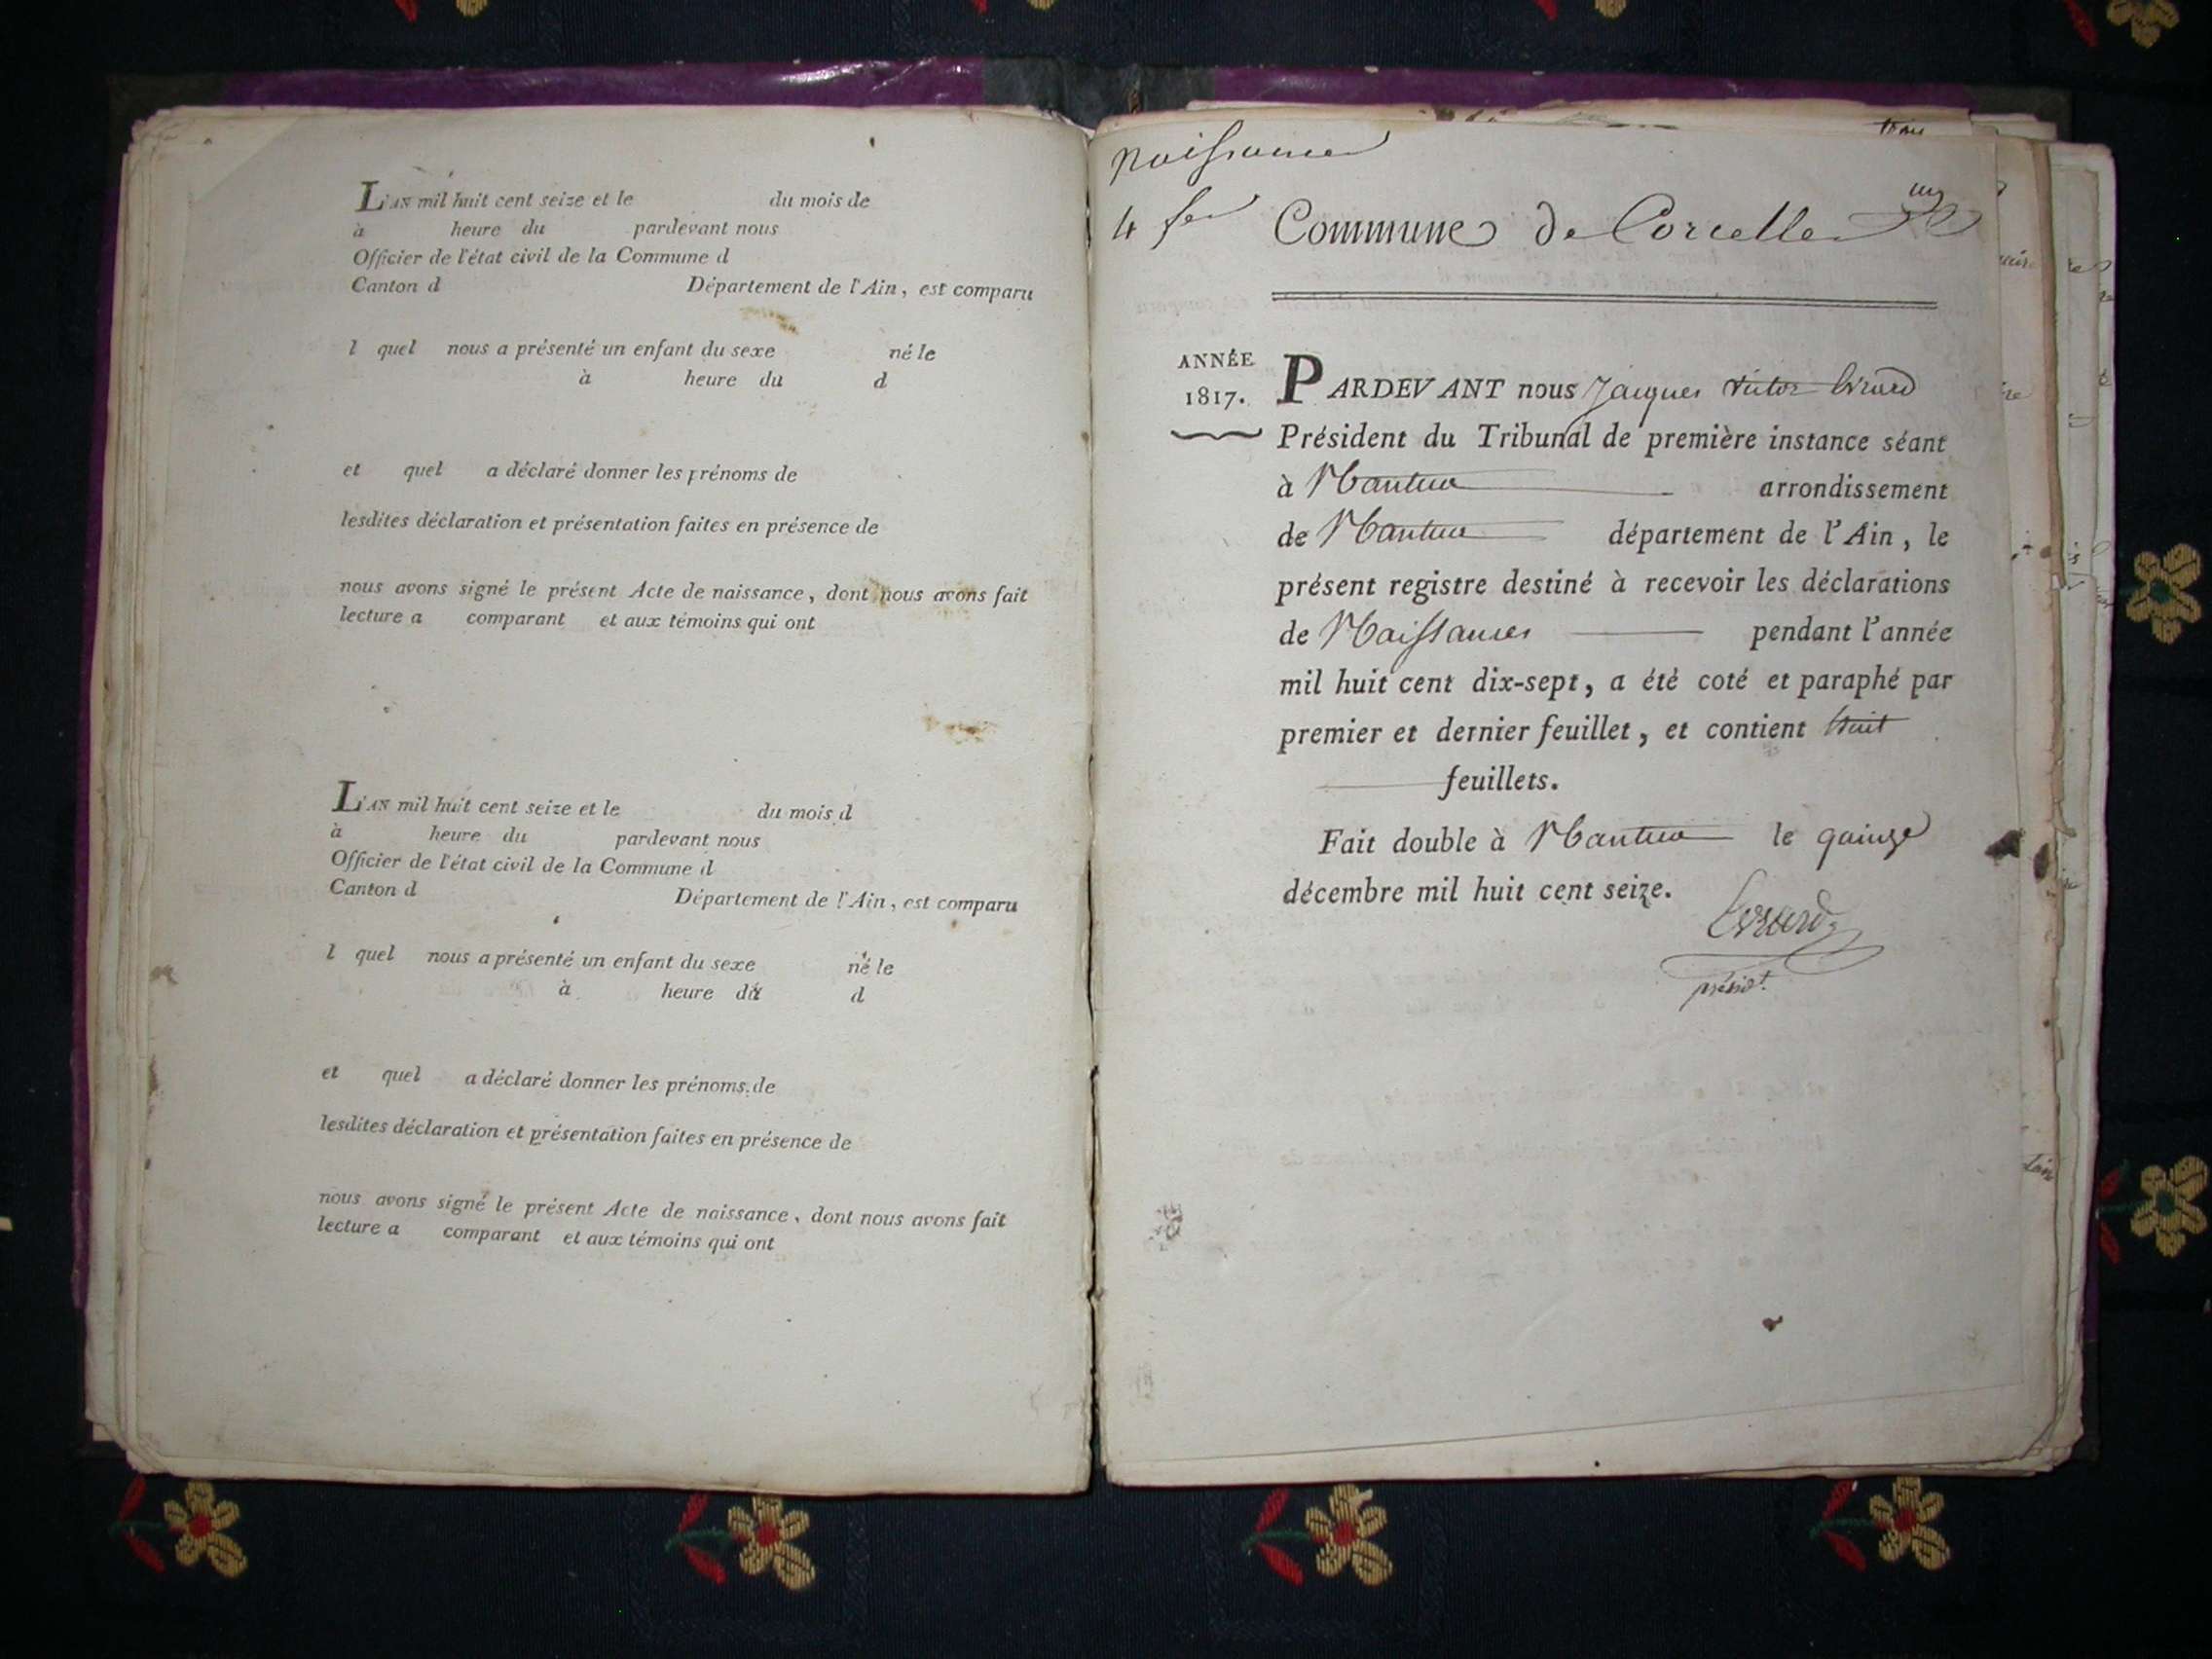 L'AN mil huit cent seize et le du mois de
à heure du pardevant nous
Officier de l'état civil de la Commune d
Canton d Département de l'Ain, est comparu
l quel nous a présenté un enfant du sexe né le
à heure du d
et quel a déclaré donner les prénoms de
lesdites déclaration et présentation faites en présence de
nous avons signé le présent Acte de naissance, dont nous avons fait
lecture a comparant et aux témoins qui ont
L'AN mil huit cent seize et le du mois d
à heure du pardevant nous
Officier de l'état civil de la Commune d
Canton d Département de l'Ain, est comparu
l quel nous a présenté un enfant du sexe né le
à heure du d
et quel a déclaré donner les prénoms de
lesdites déclaration et présentation faites en présence de
nous avons signé le présent Acte de naissance, dont nous avons fait
lecture a comparant et aux témoins qui ont
naissance
4 fet
Commune de Corcelle
ANNÉE
1817.
PARDEVANT nous Jacques Victor Evrard
Président du Tribunal de première instance séant
à Nantua arrondissement
de Nantua département de l'Ain, le
présent registre destiné à recevoir les déclarations
de Naissances pendant l'année
mil huit cent dix-sept, a été coté et paraphé par
premier et dernier feuillet, et contient huit
feuillets.
Fait double à Nantua le quinze
décembre mil huit cent seize.
Evrard
présidt.